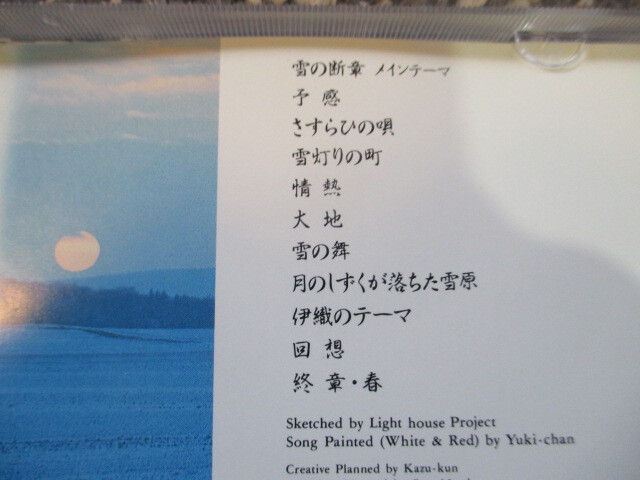 雪の断章 メインテーマ
予 感
さすらひの唄
雪灯りの町
情 熱
大 地
雪の舞
月のしずくが落ちた雪原
伊織のテーマ
回 想
終 章・春
Sketched by Light house Project
Song Painted (White & Red) by Yuki-chan
Creative Planned by Kazu-kun